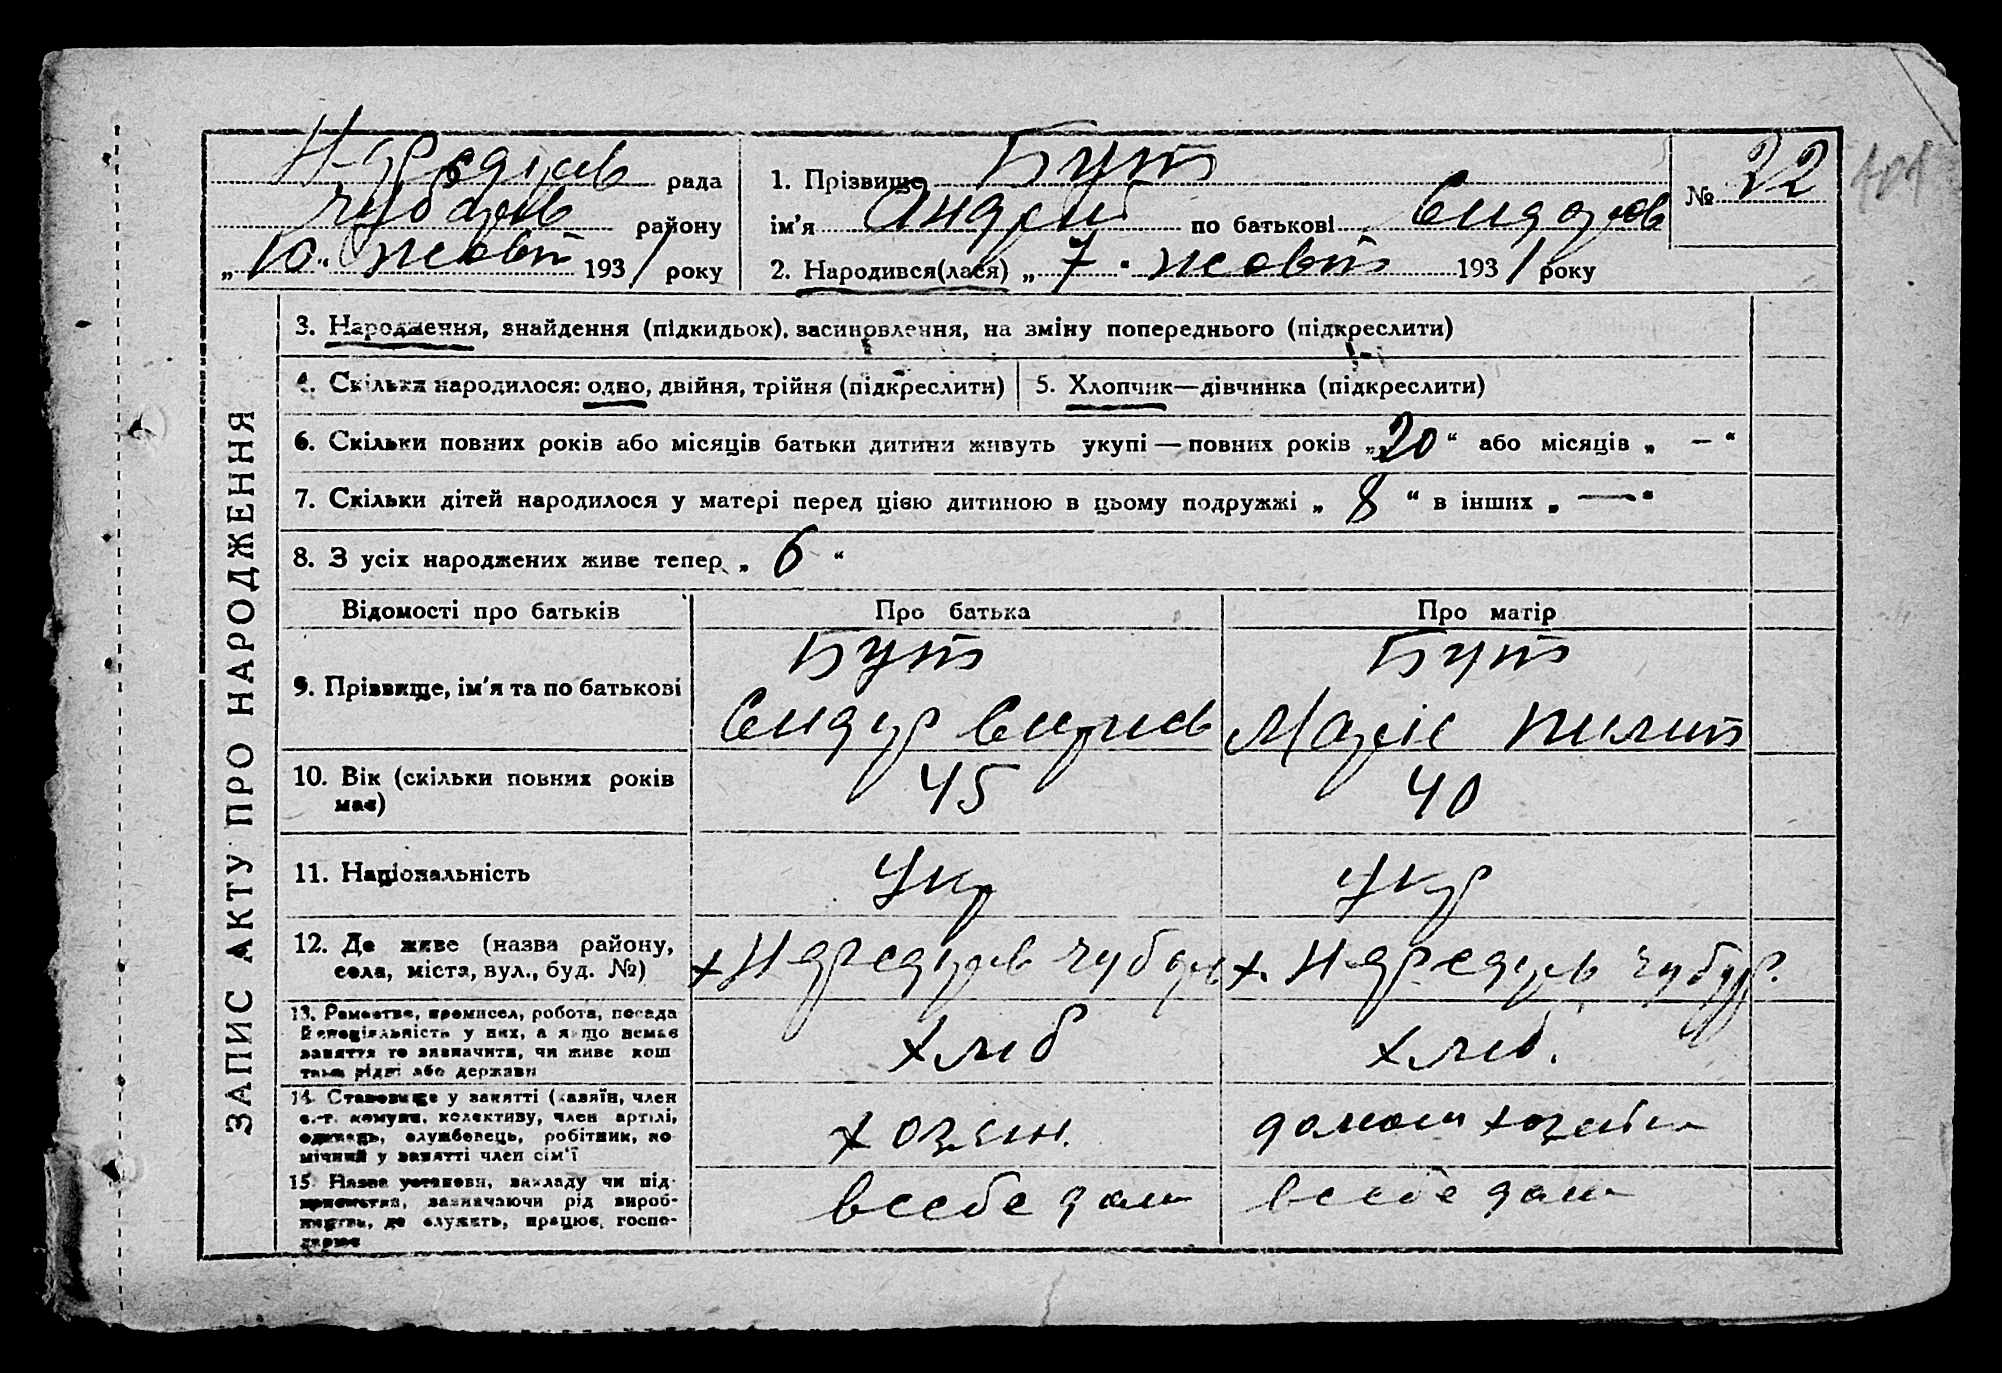 Н-Аредарів рада
Чубарів району
„10“ жовт 1931 року
1. Прізвище Бут
ім'я Андрій по батькові Сидорів
2. Народився(лася) „7“ жовт 1931 року
№ 22
ЗАПИС АКТУ ПРО НАРОДЖЕННЯ
3. Народження, знайдення (підкидьок), засиновлення, на зміну попереднього (підкреслити)
4. Скільки народилося: одно, двійня, трійня (підкреслити)
5. Хлопчик—дівчинка (підкреслити)
6. Скільки повних років або місяців батьки дитини живуть укупі — повних років „20“ або місяців „ — “
7. Скільки дітей народилося у матері перед цією дитиною в цьому подружжі „ 8 “ в інших „ — “
8. З усіх народжених живе тепер „ 6 “
Відомості про батьків Про батька Про матір
9. Прізвище, ім'я та по батькові
Бут
Сидур
Бут
Марія Пилип
10. Вік (скільки повних років має)
45
40
11. Національність
Укр
Укр
12. Де живе (назва району,
села, міста, вул., буд. №)
13. Ремество, промисел, робота, посада
й спеціяльність у них, а якщо немає
заняття то зазначити, чи живе кош
тами рідні або держави
хліб
хліб.
14. Становище у занятті (хазяїн, член
с.-г. комуни, колективу, член артілі,
одинець, службовець, робітник, по
мічний у занятті член сім'ї
хозяін.
домош хозяйка
15. Назва установи, закладу чи під-
приємства, зазначаючи рід вироб-
ництва, де служить, працює, госпо-
дарює
всебе дом
всебе дом